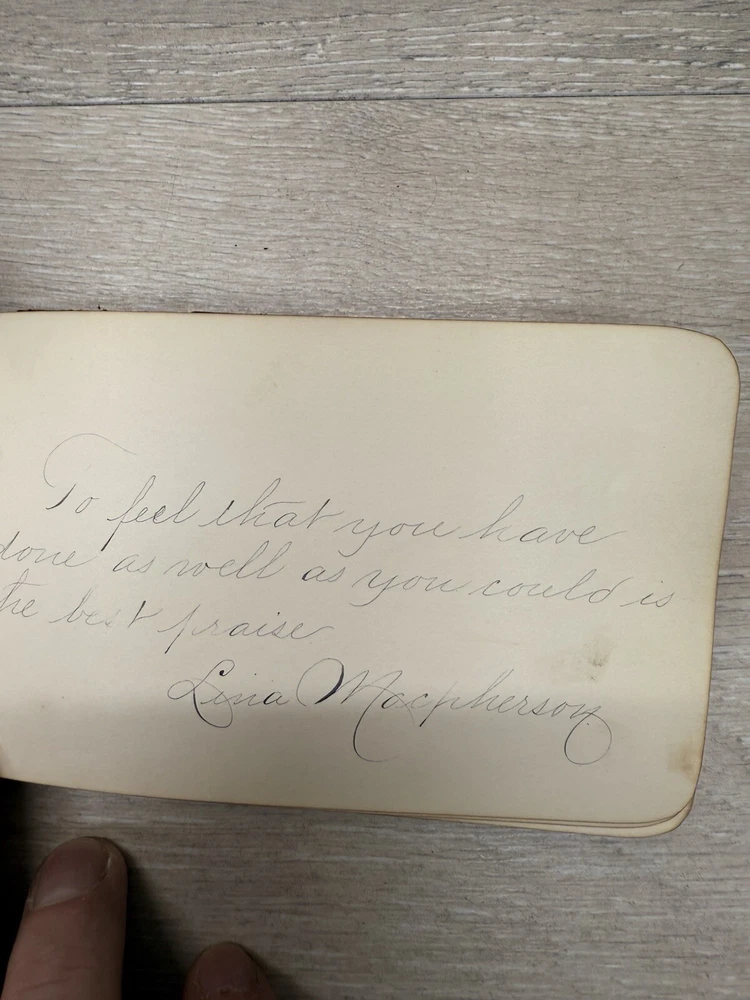 To feel that you have
done as well as you could is
the best praise
Lina Macpherson